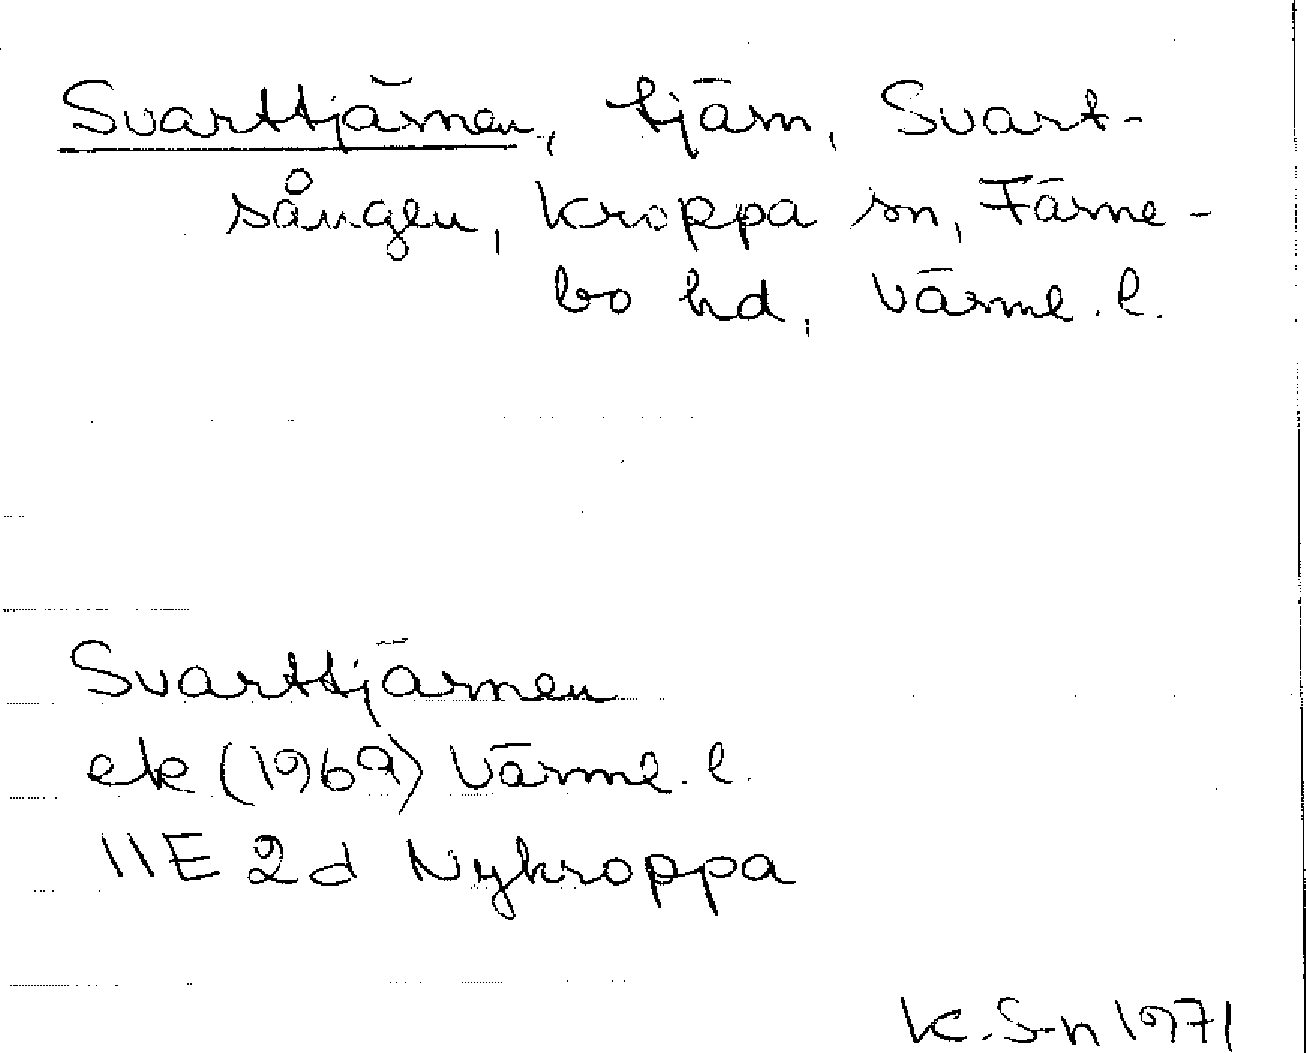 Svarttjärnen, tjärn, Svart-
sången, Kroppa sn, Färne-
bo hd, Värml. l.
Svarttjärnen
ek (1969) Värml. l.
11E 2d Nykroppa
K. S-n 1971